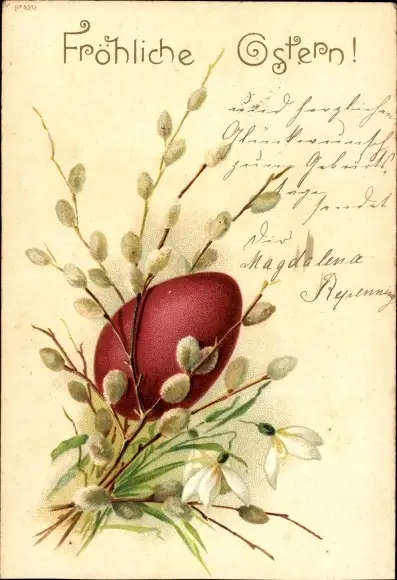 Nº 5315
Fröhliche Ostern!
und herzlichen
Glückwunsch
zum Geburts-
tage
sendet
Dir
Magdalena
Repenning